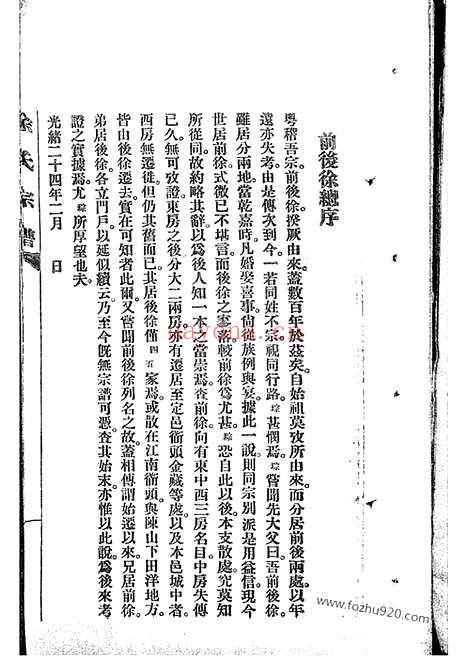 前後徐總序
粤稽吾宗前後徐揆厥由來蓋數百年於茲矣自始祖莫攷所由來而分居前後兩處以年
遠亦失考由是傳次到今一若同姓不宗視同行路琮甚憫焉琮嘗聞先大父曰吾前後徐
雖居分兩地當乾嘉時凡婚娶喜事尙從族例與宴據此一說則同宗別派是用益信現今
世居前徐式微已不堪言而後徐之零落較前徐爲尤甚琮恐自此以後本支散處究莫知
所從同故約略其辭以爲後人知一本之當崇焉查前徐向有東中西三房名目中房失傳
已久無可攷證東房之後分大二兩房亦有遷居至定邑衙頭金藏等處以及本邑城中者
西房無遷徙但仍其舊而已其居後徐僅四五家焉或散在江南衙頭與陳山下田洋地方
皆由後徐遷去實在可知者此爾又嘗聞前後徐列名之故蓋相傳謂始遷以來兄居前徐
弟居後徐各立門戶以延似續云乃至今旣無宗譜可憑查其始末亦惟以此說爲後來考
證之實據焉尤琮所厚望也夫
光緒二十四年二月　日
徐氏宗譜
nayona.cn
www.fozhu920.com